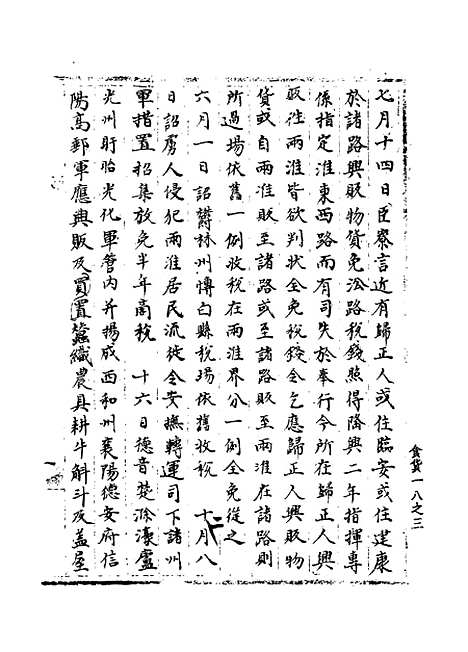 七月十四日臣寮言近有歸正人或住臨安或住建康
於諸路興販物貨免沿路稅錢照得隆興二年指揮專
係指定淮東西路而有司失於奉行令所在歸正人興
販往兩淮皆欲判狀全免稅錢今乞應歸正人興販物
貨或自兩淮販至諸路或至諸路販至兩淮在諸路則
所過場依舊一例收稅在兩淮界分一例全免從之
六月一日詔欝林州博白縣稅場依舊收稅 十一月八
日詔虜人侵犯兩淮居民流徙令安撫轉運司下諸州
軍措置招集放免半年商稅 十六日德音楚滁濠廬
光州盱眙光化軍管內并揚成西和州襄陽德安府信
陽高郵軍應興販及買置蠶織農具耕牛斛斗及蓋屋
食貨一八之三